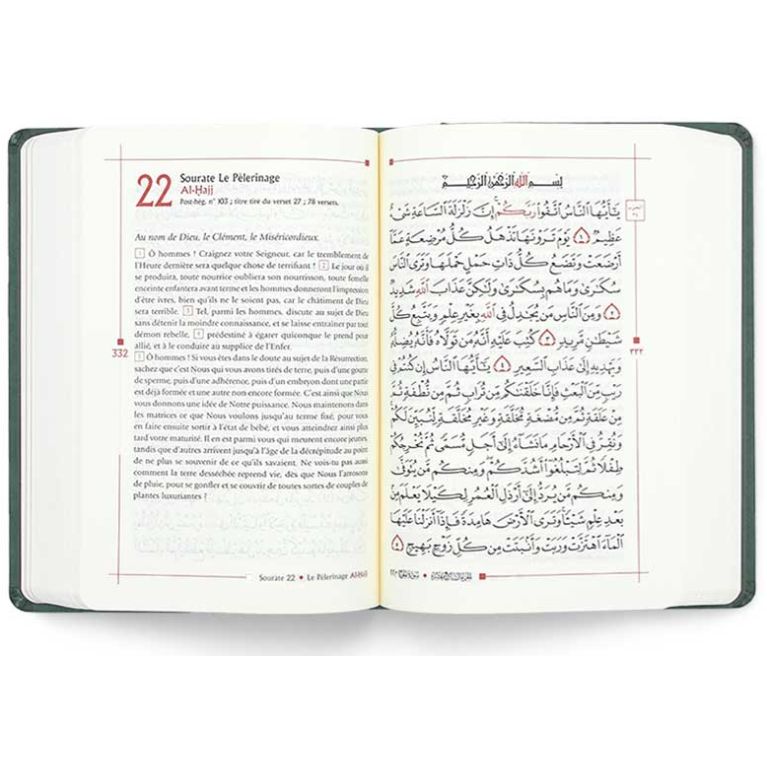 22
Sourate Le Pèlerinage
Al-Ḥajj
Post-hég. n° 103 ; titre tiré du verset 27 ; 78 versets.
Au nom de Dieu, le Clément, le Miséricordieux.
1 Ô hommes ! Craignez votre Seigneur, car le tremblement de
l'Heure dernière sera quelque chose de terrifiant ! 2 Le jour où il
se produira, toute nourrice oubliera son nourrisson, toute femelle
enceinte enfantera avant terme et les hommes donneront l'impression
d'être ivres, bien qu'ils ne le soient pas, car le châtiment de Dieu
sera terrible. 3 Tel, parmi les hommes, discute au sujet de Dieu
sans détenir la moindre connaissance, et se laisse entraîner par tout
démon rebelle, 4 prédestiné à égarer quiconque le prend pour
allié, et à le conduire au supplice de l'Enfer.
5 Ô hommes ! Si vous êtes dans le doute au sujet de la Résurrection,
sachez que c'est Nous qui vous avons tirés de terre, puis d'une goutte
de sperme, puis d'une adhérence, puis d'un embryon dont une partie
est déjà formée et une autre non encore formée. C'est ainsi que Nous
vous donnons une idée de Notre puissance. Nous maintenons dans
les matrices ce que Nous voulons jusqu'au terme fixé, pour vous
en faire ensuite sortir à l'état de bébé, et vous atteindrez ainsi plus
tard votre maturité. Il en est parmi vous qui meurent encore jeunes,
tandis que d'autres arrivent jusqu'à l'âge de la décrépitude au point
de ne plus se souvenir de ce qu'ils savaient. Ne vois-tu pas aussi
comment la terre desséchée reprend vie, dès que Nous l'arrosons
de pluie, pour se gonfler et se couvrir de toutes sortes de couples de
plantes luxuriantes ?
332
Sourate 22 • Le Pèlerinage Al-Ḥajj
بِسْمِ اللَّهِ الرَّحْمَٰنِ الرَّحِيمِ
يَٰٓأَيُّهَا ٱلنَّاسُ ٱتَّقُوا۟ رَبَّكُمْ إِنَّ زَلْزَلَةَ ٱلسَّاعَةِ شَىْءٌ
عَظِيمٌ ١ يَوْمَ تَرَوْنَهَا تَذْهَلُ كُلُّ مُرْضِعَةٍ عَمَّآ
أَرْضَعَتْ وَتَضَعُ كُلُّ ذَاتِ حَمْلٍ حَمْلَهَا وَتَرَى ٱلنَّاسَ
سُكَٰرَىٰ وَمَا هُم بِسُكَٰرَىٰ وَلَٰكِنَّ عَذَابَ ٱللَّهِ شَدِيدٌ
٢ وَمِنَ ٱلنَّاسِ مَن يُجَٰدِلُ فِى ٱللَّهِ بِغَيْرِ عِلْمٍ وَيَتَّبِعُ كُلَّ
شَيْطَٰنٍ مَّرِيدٍ ٣ كُتِبَ عَلَيْهِ أَنَّهُۥ مَن تَوَلَّاهُ فَأَنَّهُۥ يُضِلُّهُۥ
وَيَهْدِيهِ إِلَىٰ عَذَابِ ٱلسَّعِيرِ ٤ يَٰٓأَيُّهَا ٱلنَّاسُ إِن كُنتُمْ فِى
رَيْبٍ مِّنَ ٱلْبَعْثِ فَإِنَّا خَلَقْنَٰكُم مِّن تُرَابٍ ثُمَّ مِن نُّطْفَةٍ ثُمَّ
مِنْ عَلَقَةٍ ثُمَّ مِن مُّضْغَةٍ مُّخَلَّقَةٍ وَغَيْرِ مُخَلَّقَةٍ لِّنُبَيِّنَ لَكُمْ
وَنُقِرُّ فِى ٱلْأَرْحَامِ مَا نَشَآءُ إِلَىٰٓ أَجَلٍ مُّسَمًّى ثُمَّ نُخْرِجُكُمْ
طِفْلًا ثُمَّ لِتَبْلُغُوٓا۟ أَشُدَّكُمْ وَمِنكُم مَّن يُتَوَفَّىٰ
وَمِنكُم مَّن يُرَدُّ إِلَىٰٓ أَرْذَلِ ٱلْعُمُرِ لِكَيْلَا يَعْلَمَ مِنۢ
بَعْدِ عِلْمٍ شَيْـًٔا وَتَرَى ٱلْأَرْضَ هَامِدَةً فَإِذَآ أَنزَلْنَا عَلَيْهَا
ٱلْمَآءَ ٱهْتَزَّتْ وَرَبَتْ وَأَنۢبَتَتْ مِن كُلِّ زَوْجٍۭ بَهِيجٍ ٥
٣٣٢